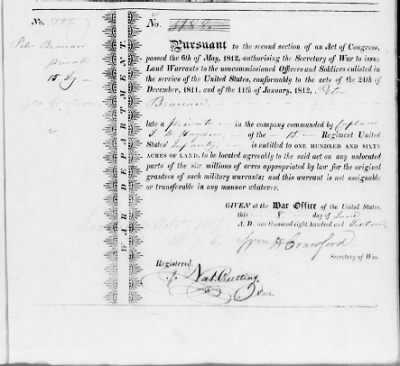 No. 1788.
Peter
private
15 Inf
WAR DEPARTMENT.
No. 1788.
Pursuant to the second section of an Act of Congress,
passed the 6th of May, 1812, authorising the Secretary of War to issue
Land Warrants to the noncommissioned Officers and Soldiers enlisted in
the service of the United States, conformably to the acts of the 24th of
December, 1811, and of the 11th of January, 1812, Peter
late a private in the company commanded by Captain
of the 15 Regiment United
States' Infantry is entitled to ONE HUNDRED AND SIXTY
ACRES OF LAND, to be located agreeably to the said act on any unlocated
parts of the six millions of acres appropriated by law for the original
grantees of such military warrants; and this warrant is not assignable
or transferable in any manner whatever.
GIVEN at the War Office of the United States,
this 8 day of June
A. D. one thousand eight hundred and sixteen
Wm H Crawford
Secretary of War.
Registered.
Nat. Cutting